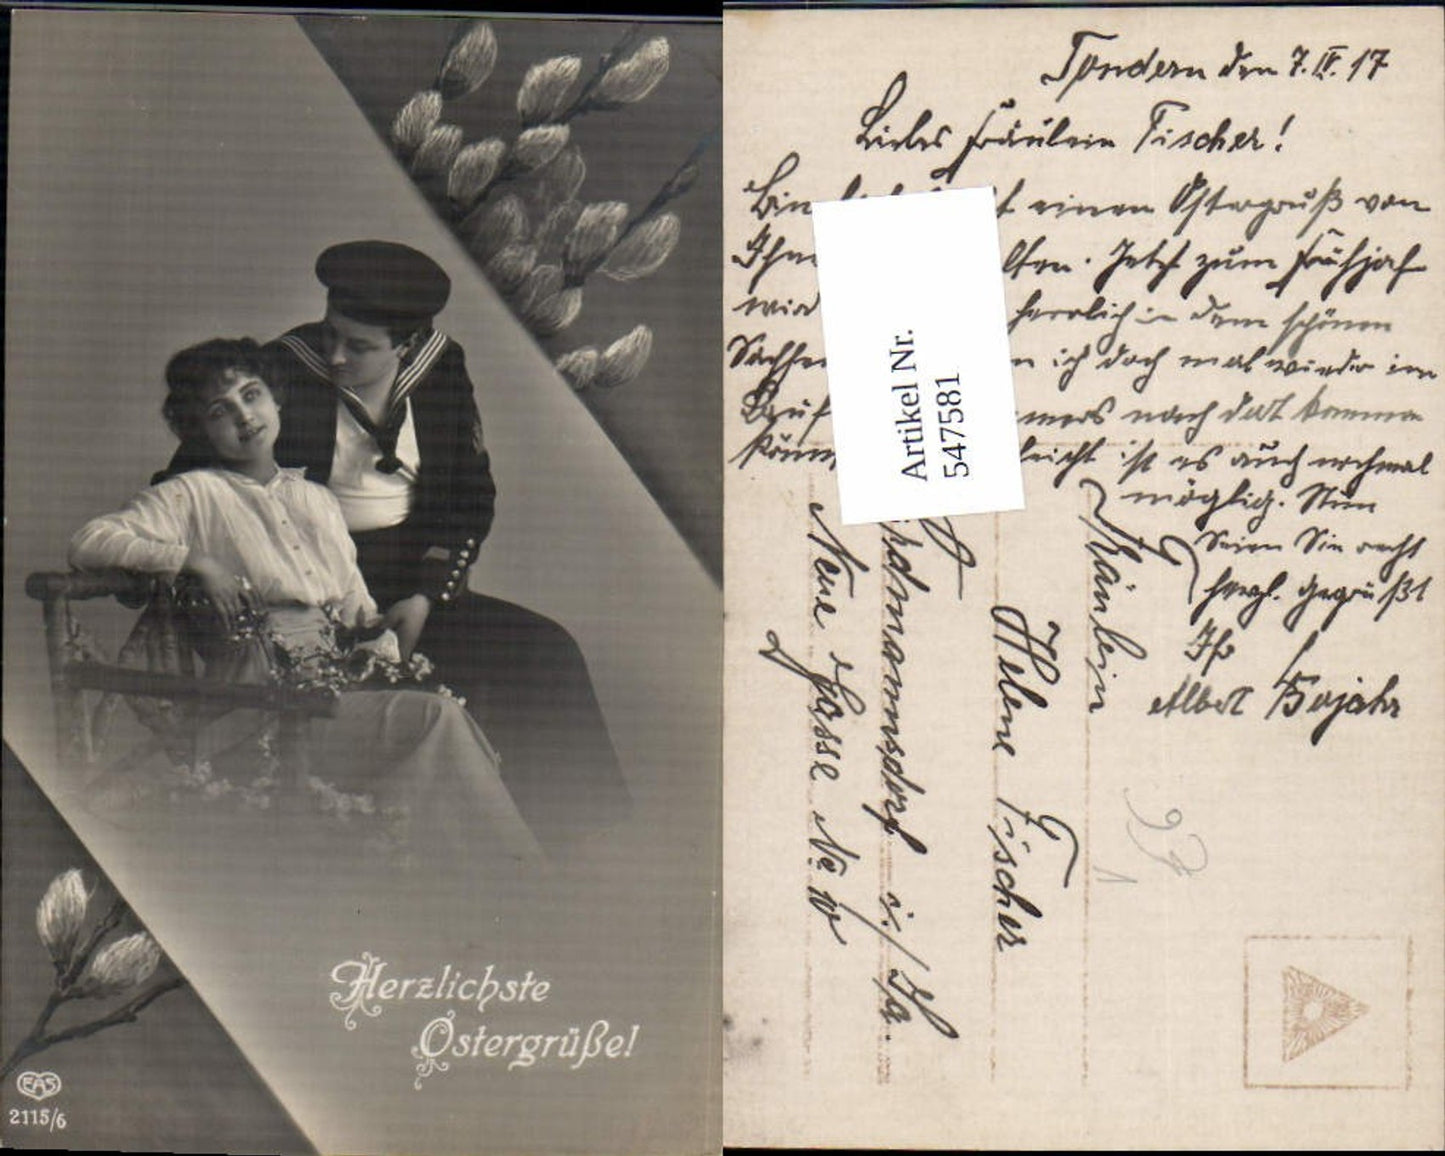 Herzlichste
Ostergrüße!
EAS
2115/6
Tondern den 7.IV.17
Liebes Fräulein Fischer!
Bin einen Ostergruß von
Jetzt zum Frühjahr
wird herrlich in dem schönen
Sachsen ich doch mal wieder im
Lauf nach dort kommen
könn ist es auch nochmal
möglich. Nun
Seien Sie recht
herzl. gegrüßt
Ihr
Albert Bojahr
Artikel Nr.
547581
Fräulein
Helene Fischer
erdmannsdorf i./Sa.
Neue Gasse No 10